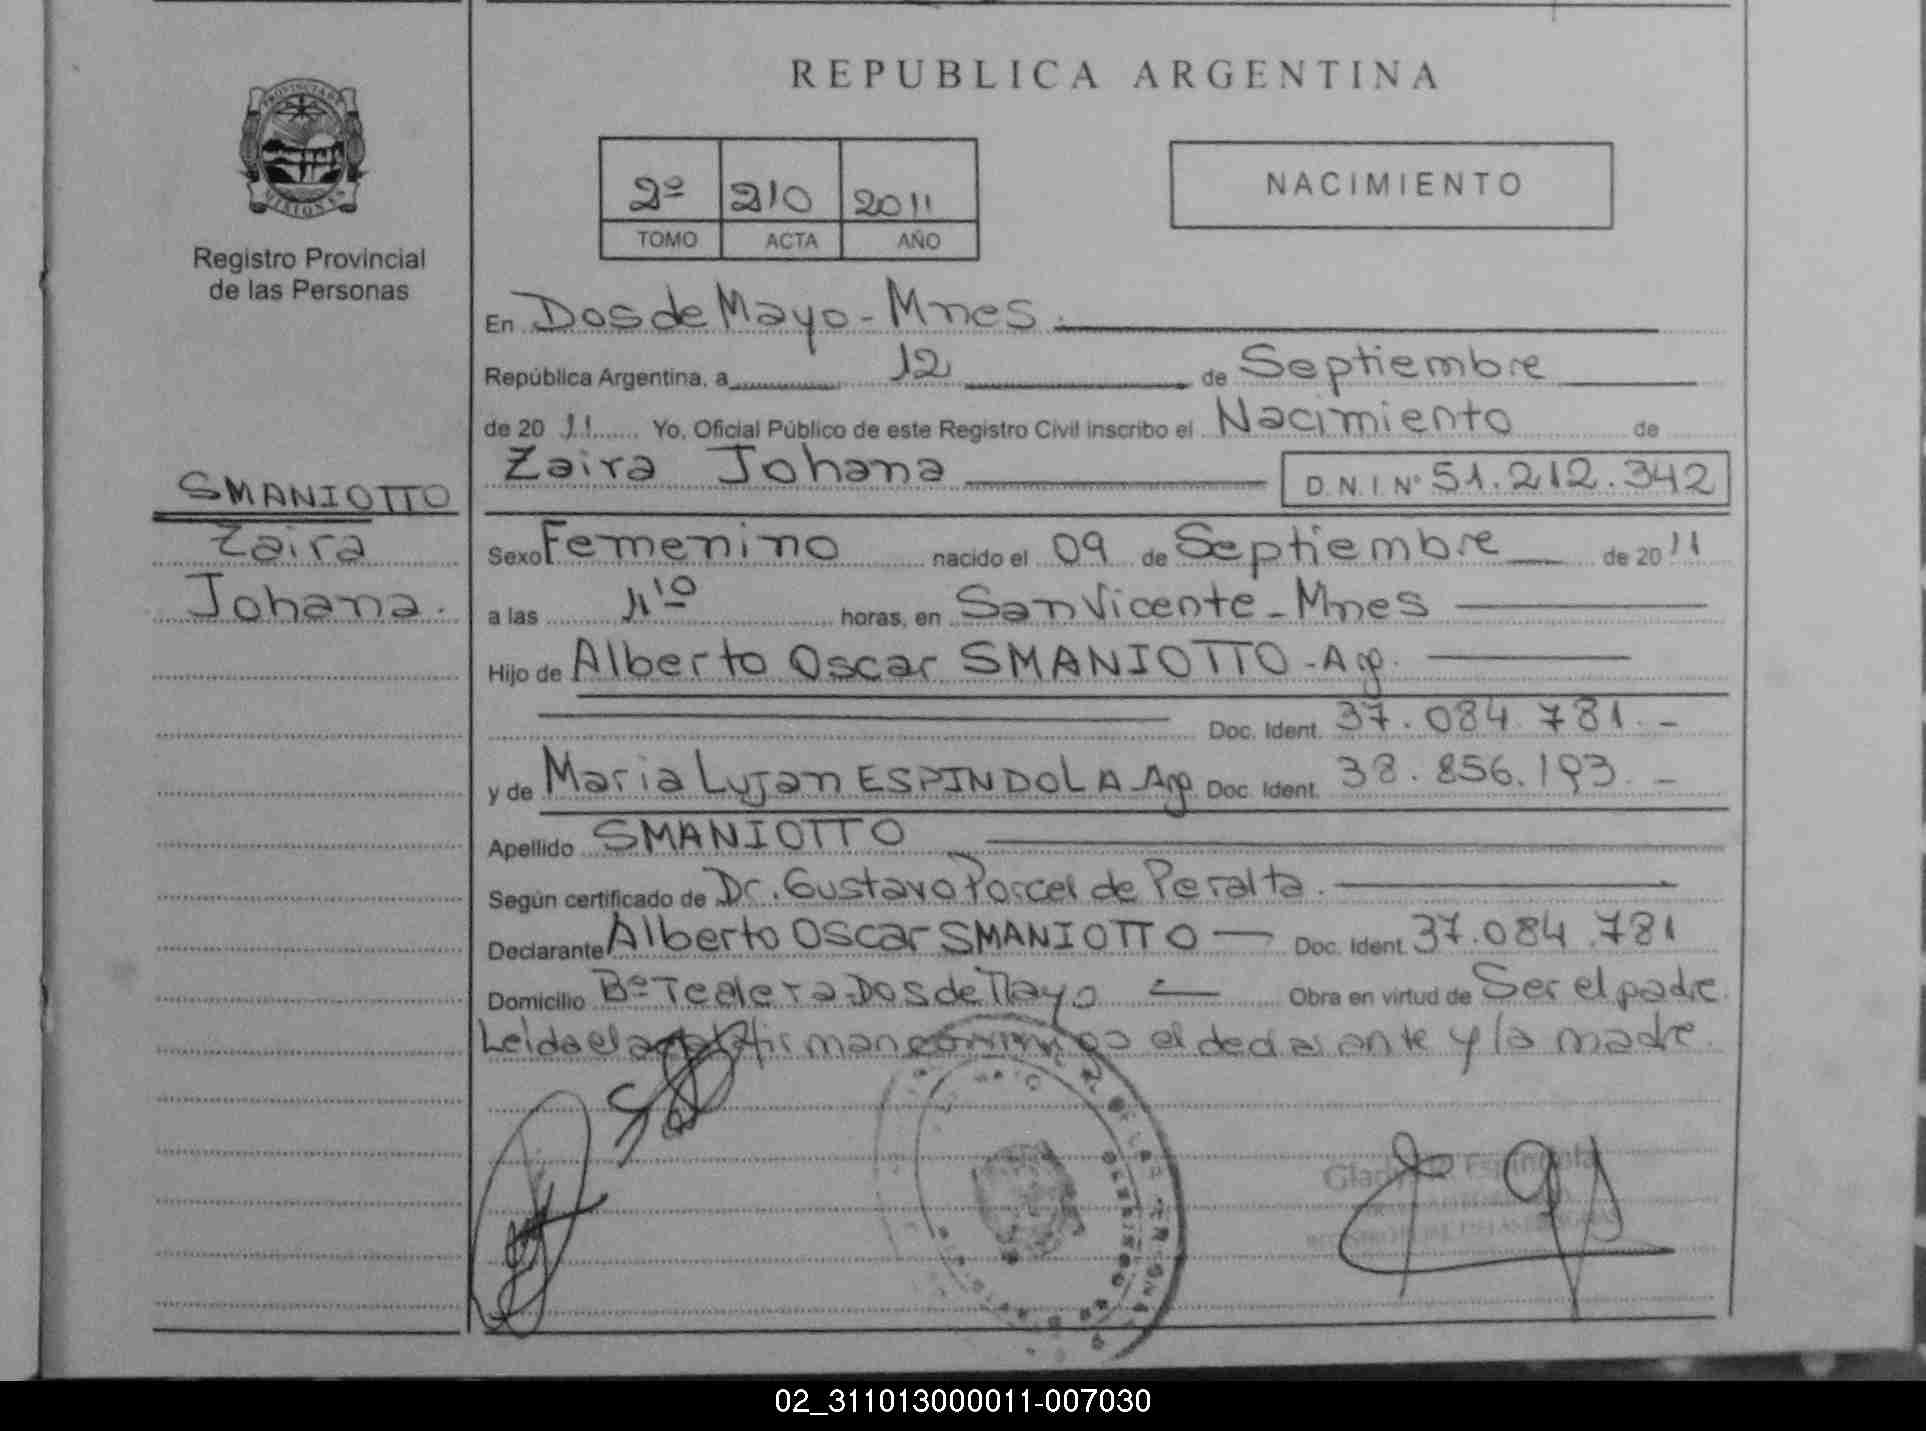 REPUBLICA ARGENTINA
Registro Provincial
de las Personas
2º 210 2011
TOMO ACTA AÑO
NACIMIENTO
En Dos de Mayo - Mnes.
República Argentina, a 12 de Septiembre
de 20 11 Yo, Oficial Público de este Registro Civil inscribo el Nacimiento de
Zaira Johana D.N.I. Nº 51.212.342
SMANIOTTO
Zaira
Johana.
Sexo Femenino nacido el 09 de Septiembre de 2011
a las 11'º horas, en San Vicente - Mnes
Hijo de Alberto Oscar SMANIOTTO - Arg.
Doc. Ident. 37.084.781.-
y de Maria Lujan ESPINDOLA Arg Doc. Ident. 38.856.193.-
Apellido SMANIOTTO
Según certificado de Dr. Gustavo Porcel de Peralta.
Declarante Alberto Oscar SMANIOTTO Doc. Ident. 37.084.781
Domicilio Bº Tealera Dos de Mayo Obra en virtud de Ser el padre.
Leida el acta firman conmigo el declarante y la madre.
Espindola
02_311013000011-007030